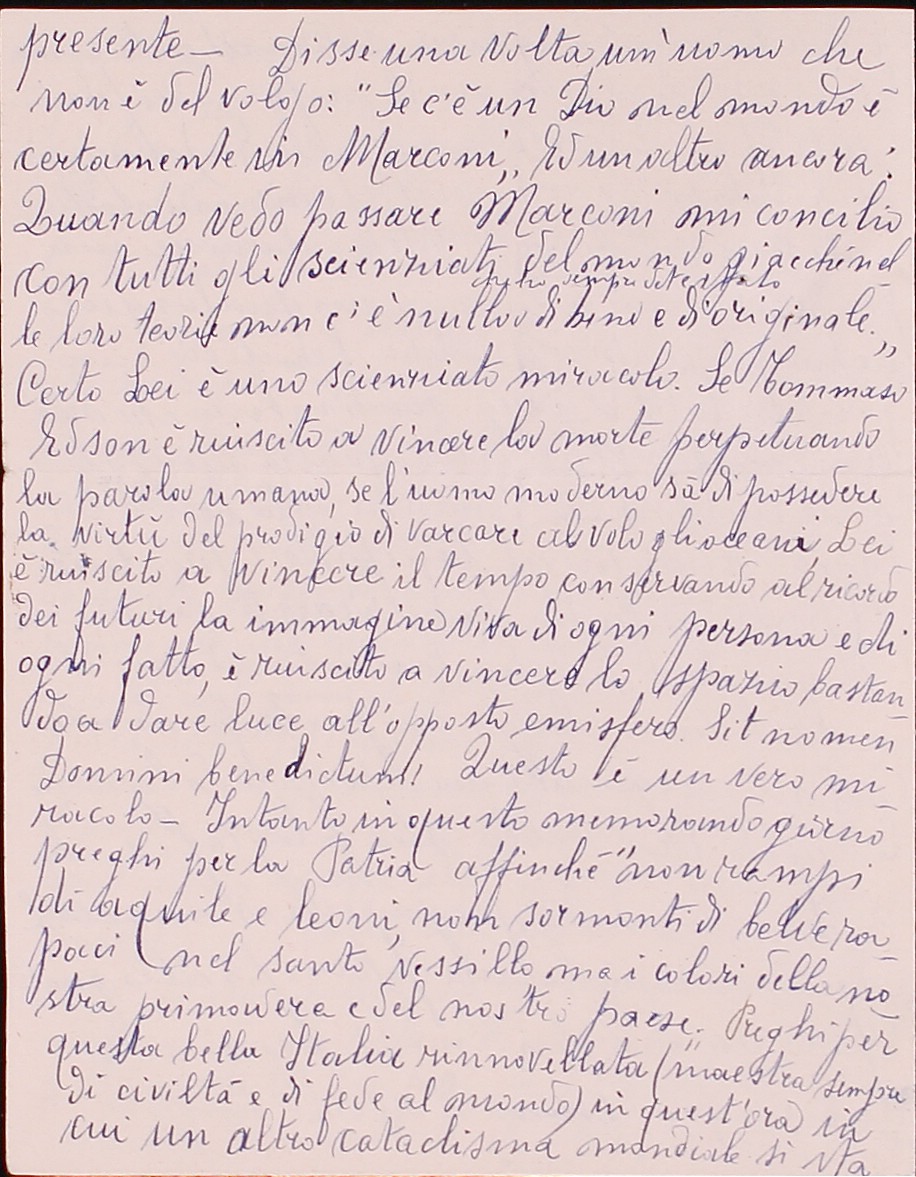 presente – Disse una volta un'uomo che
non è del volgo: "Se c'è un Dio nel mondo è
certamente in Marconi,, Ed un altro ancora:
Quando vedo passare Marconi mi concilio
con tutti gli scienziati del mondo giacché nel
le loro teorie non c'è nulla di bene e di originale.,,
Certo Lei è uno scienziato miracolo. Se Tommaso
Edson è riuscito a vincere la morte perpetuando
la parola umana, se l'uomo moderno sà di possedere
la virtù del prodigio di varcare al volo gli oceani, Lei
è riuscito a vincere il tempo conservando al ricordo
dei futuri la immagine viva di ogni persona e di
ogni fatto, è riuscito a vincere lo spazio bastan
do a dare luce all'opposto emisfero. Sit nomen
Domini benedictum! Questo è un vero mi
racolo – Intanto in questo memorando giorno
preghi per la Patria affinché "non rampi
di aquile e leoni, non sormonti di belve ra
paci nel santo vessillo ma i colori della no
stra primavera e del nostro paese. Preghi per
questa bella Italia rinnovellata (maestra sempre
di civiltà e di fede al mondo) in quest'ora in
cui un altro cataclisma mondiale si sta